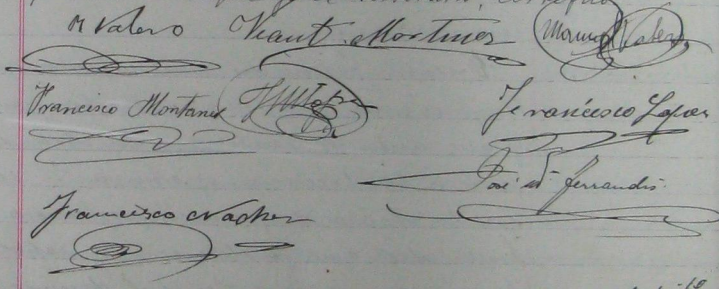 M Valero Vicent Martinez Manuel Valero
Francisco Montaner López Francisco Lopez
José Mª Ferrandis
Francisco Nacher